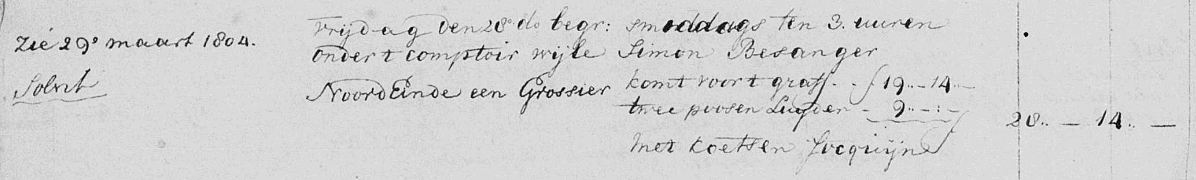 Zie 29e maart 1804.
Solvit
Vrijdag den 28e do begr: smiddags ten 3. uuren
ondert comptoir wijle Simon Besanger
NoordEinde een Grossier komt voort graff. . ƒ 19 .. – 14 –
twee poosen Luyden – 9 .. – : –
28 .. – 14 .. –
met koetsen